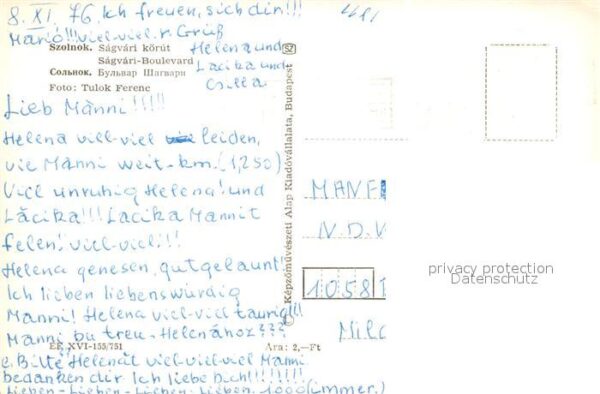 8. XI. 76. Ich freuen, sich dir!!!
Manó!!! viel-viel. r. Grüß
Helena und
Lacika und
Csilla
Szolnok. Ságvári körút
Ságvári-Boulevard
Сольнок. Бульвар Шагвари
Foto: Tulok Ferenc
Lieb Mànni!!!!!
Helena viell-viel leiden,
vie Mànni weit-km. (1,250)
Viell unruhig Helena! und
Làcika!!! Lacika Mannit
felen! viel-viel!!!
Helena genesen, gutgelaunt!
Ich lieben liebenswürdig
Manni! Helena viel-viel taurig!!!
Manni bu treu-Helenához???
EF, XVI-155/751
Ára: 2,—Ft
Bitte Helenàt viel-viel-viel Manni
bedanken dir Ich liebe Dich!!!!!!!!
Lieben-Lieben-Lieben-Lieben. 1000 (immer.)
Képzőművészeti Alap Kiadóvállalata, Budapest
MANF
N.D.V
1058
privacy protection
Datenschutz